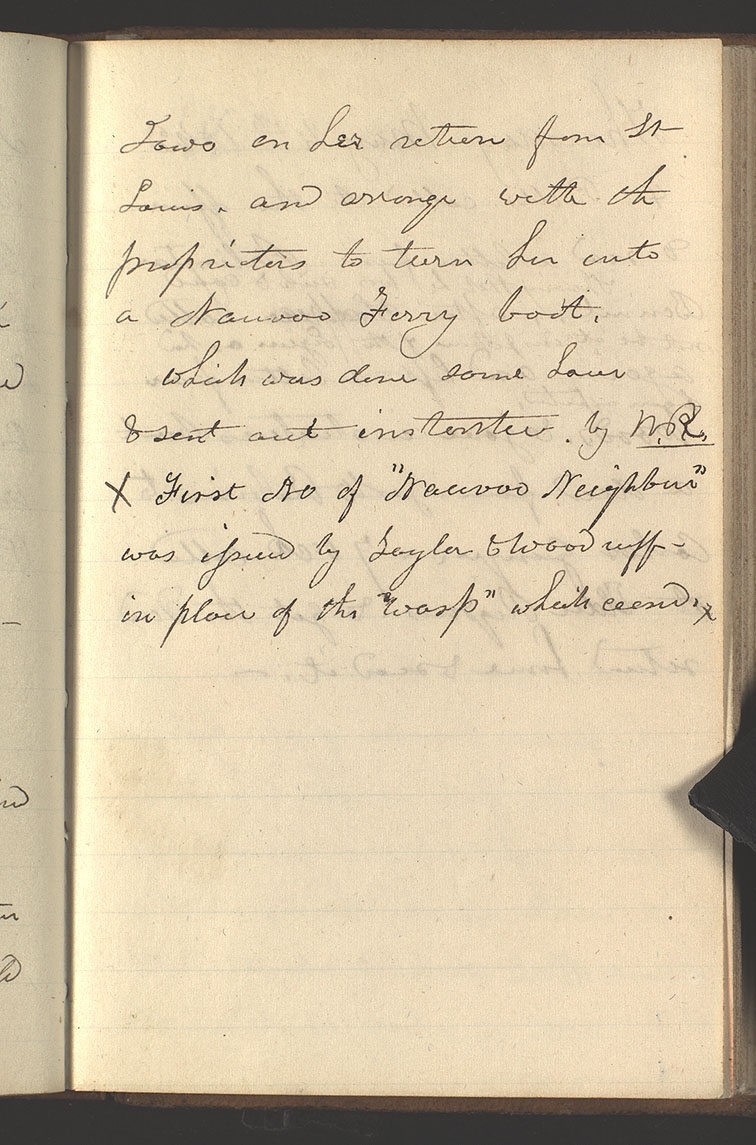 Iowa on her return from St
Louis. and arrange with the
proprietors to turn her into
a Nauvoo Ferry boat.
which was done same hour
& sent out instanter. by W.R.
X First No of "Nauvoo Neighbor"
was issued by Taylor & Woodruff-
in place of the "Wasp" which ceased. X